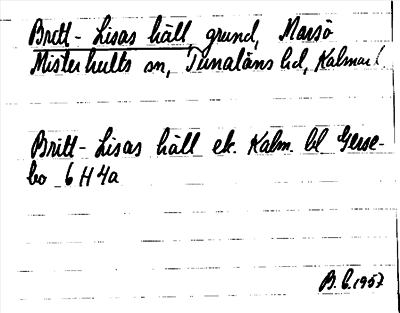 Britt-Lisas häll, grund, Marsö
Misterhults sn, Tunaläns hd, Kalmar l
Britt-Lisas häll ek. Kalm. bl Gerse-
bo 6 H 4a
B.G. 1957